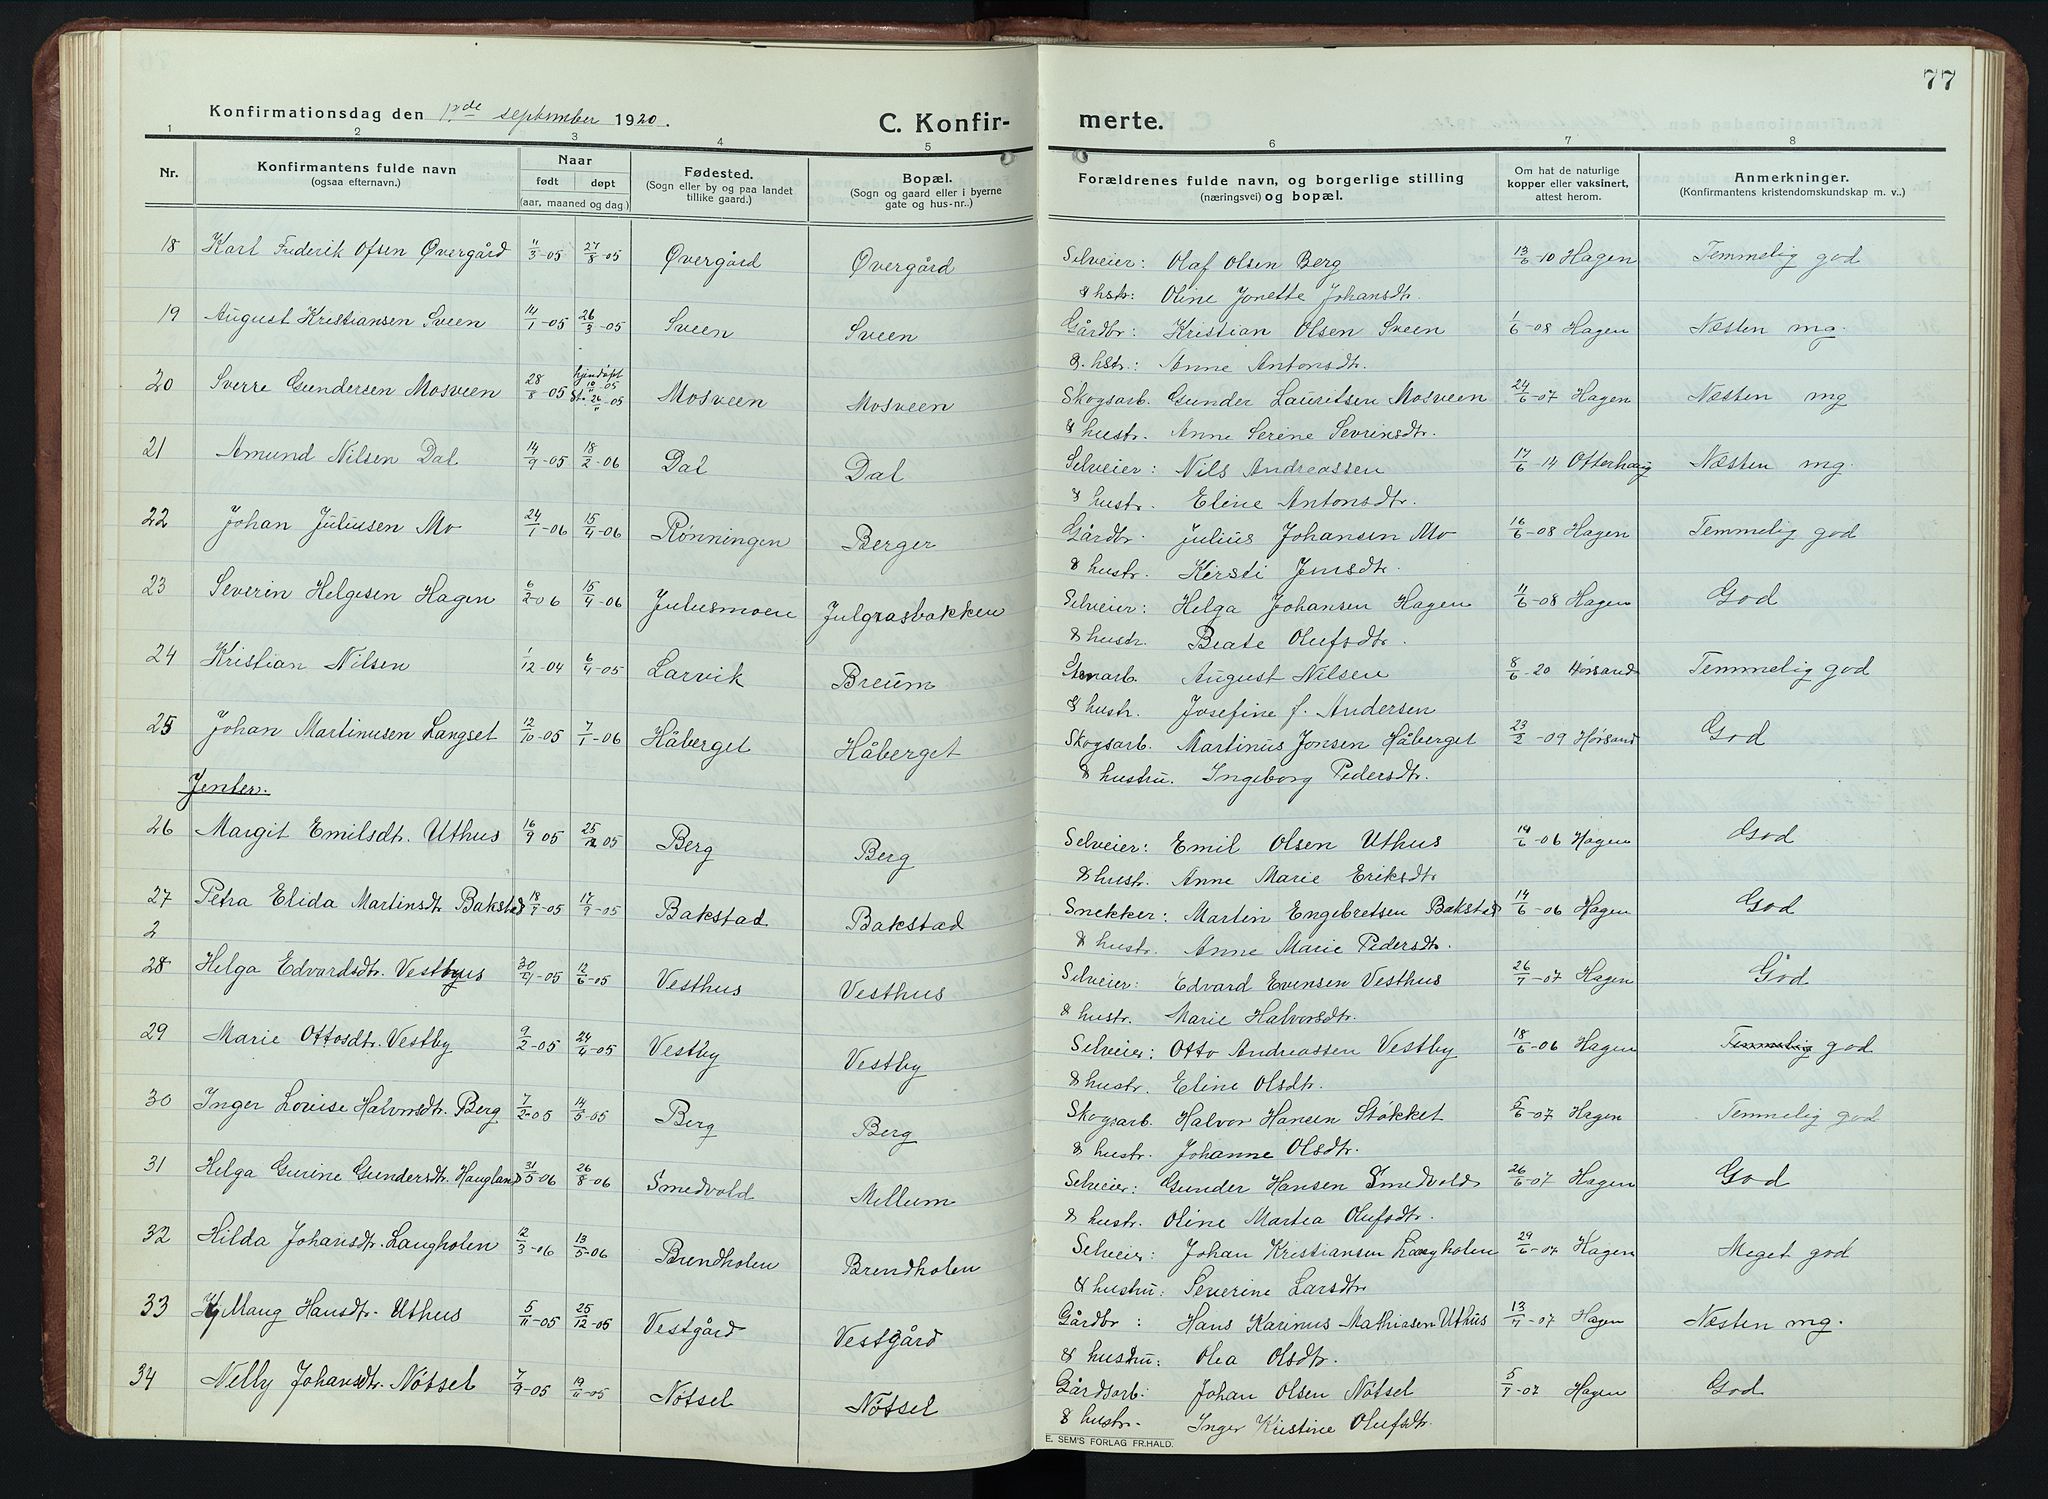 77
Konfirmationsdag den 12de september 1920.
C. Konfir- merte.
1 2 3 4 5 6 7 8
Nr.
Konfirmantens fulde navn
(ogsaa efternavn.)
Naar
født døpt
(aar, maaned og dag)
Fødested.
(Sogn eller by og paa landet
tillike gaard.)
Bopæl.
(Sogn og gaard eller i byerne
gate og hus-nr..)
Forældrenes fulde navn, og borgerlige stilling
(næringsvei) og bopæl.
Om hat de naturlige
kopper eller vaksinert,
attest herom.
Anmerkninger.
(Konfirmantens kristendomskundskap m. v..)
18 Karl Frederik Olsen Øvergård 11/3-05 27/8-05 Øvergård Øvergård Selveier: Olaf Olsen Berg 13/6-10 Hagen Temmelig god
& hstr: Oline Jonette Johansdtr.
19 August Kristiansen Sveen 14/1-05 26/3-05 Sveen Sveen Gårdbr: Kristian Olsen Sveen 1/6-08 Hagen Næsten mg.
& hstr.: Anne Antonsdtr.
20 Sverre Gundersen Mosveen 28/8-05 hjemdøpt 10/11-05 St. 26/11-05 Mosveen Mosveen Skogsarb. Gunder Lauritsen Mosveen 24/6-07 Hagen Næsten mg
& hustr. Anne Serine Sevrinsdtr.
21 Amund Nilsen Dal 14/9-05 18/2-06 Dal Dal Selveier: Nils Andreassen 17/6-14 Otterhaug Næsten mg.
& hustr. Eline Antonsdtr.
22 Johan Juliusen Mo 24/1-06 15/4-06 Rønningen Berger Gårdbr. Julius Johansen Mo 16/6-08 Hagen Temmelig god
& hustr. Kirsti Jensdtr.
23 Severin Helgesen Hagen 6/2-06 15/4-06 Julusmoen Julgrasbakken Selveier: Helga Johansen Hagen 11/6-08 Hagen God
& hustr. Beate Olufsdtr.
24 Kristian Nilsen 1/12-04 6/4-05 Larvik Breum August Nilsen 8/6-20 Hørsand Temmelig god
& hustr. Josefine f. Andersen
25 Johan Martinusen Langset 12/10-05 7/1-06 Håberget Håberget Skogsarb. Martinus Jonsen Håberget 23/2-09 Hørsand God
& hustru. Ingeborg Pedersdtr.
Jenter.
26 Margit Emilsdtr. Uthus 16/9-05 25/12-05 Berg Berg Selveier: Emil Olsen Uthus 14/6-06 Hagen God
& hustr. Anne Marie Eriksdtr
27 Petra Elida Martinsdtr Bakstad 18/7-05 17/9-05 Bakstad Bakstad Snekker: Martin Engebretsen Bakstad 14/6-06 Hagen God
2 & hustr. Anne Marie Pedersdtr.
28 Helga Edvardsdtr. Vesthus 30/4-05 12/6-05 Vesthus Vesthus Selveier: Edvard Evensen Vesthus 26/7-07 Hagen God
& hustr. Marie Halvorsdtr.
29 Marie Ottosdtr. Vestby 9/2-05 24/4-05 Vestby Vestby Selveier: Otto Andreassen Vestby 18/6-06 Hagen Temmelig god
& hustr. Eline Olsdtr.
30 Inger Lovise Halvorsdtr. Berg 7/2-05 14/5-05 Berg Berg Skogsarb. Halvor Hansen Støkket 5/6-07 Hagen Temmelig god
& hustr. Johanne Olsdtr.
31 Helga Gurine Gundersdtr. Haugland 31/5-06 26/8-06 Smedvold Mellum Selveier: Gunder Hansen Smedvold 26/6-07 Hagen God
& hustr. Oline Martea Olufsdtr.
32 Hilda Johansdtr. Langholen 2/3-06 13/5-06 Brendholen Brendholen Selveier: Johan Kristiansen Langholen 29/6-07 Hagen Meget god
& hustru: Severine Larsdtr
33 Maug Hansdtr. Uthus 5/11-05 25/12-05 Vestgård Vestgård Gårdbr: Hans Karinus Mathiasen Uthus 13/7-07 Hagen Næsten mg.
& hustru: Olea Olsdtr.
34 Nelly Johansdtr. Nötsel 7/9-05 19/11-05 Nötsel Nötsel Gårdsarb: Johan Olsen Nötsel 5/7-07 Hagen God
& hustr. Inger Kristine Olufsdtr.
E. SEM'S FORLAG FR.HALD.